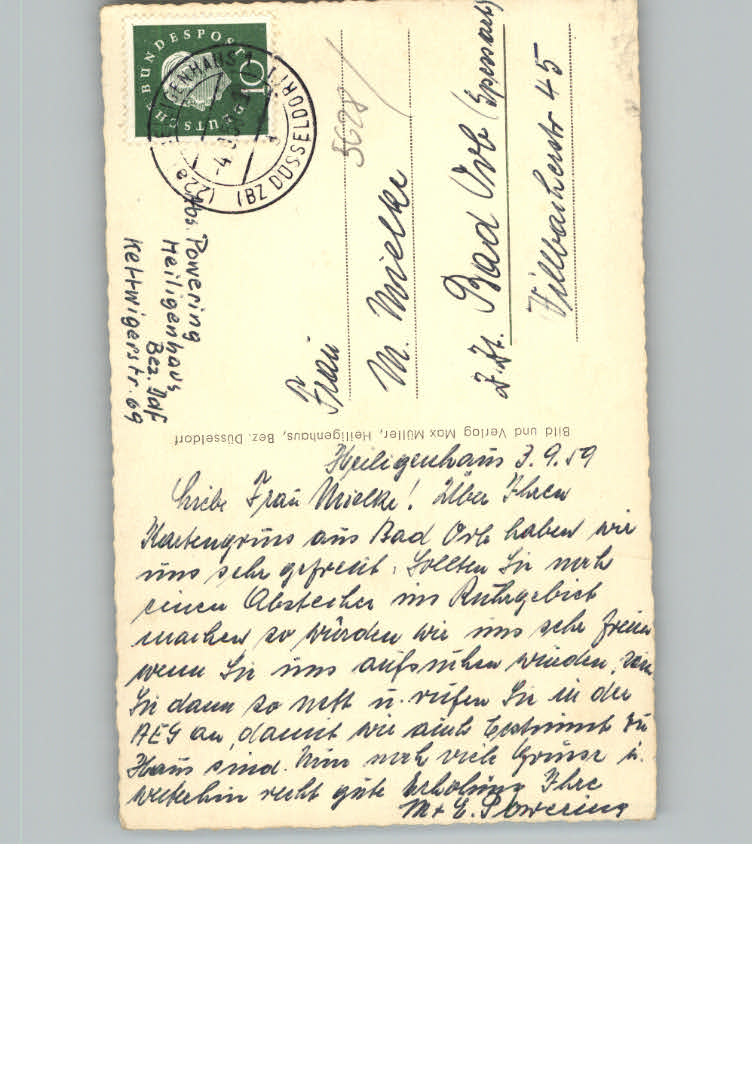 DEUTSCHE BUNDESPOST
10
(22a) HEILIGENHAUS
(BZ DÜSSELDORF)
-4.9.59
5628
Abs. Powering
Heiligenhaus
Bez. Ddf
Kettwigerstr. 69
Frau
M. Mielke
z. Zt. Bad Orb (Spessart)
Villbacherstr 45
Bild und Verlag Max Müller, Heiligenhaus, Bez. Düsseldorf
Heiligenhaus 3.9.59
Liebe Frau Mielke! Über Ihren
Kartengruss aus Bad Orb haben wir
uns sehr gefreut. Sollten Sie noch
einen Abstecher ins Ruhrgebiet
machen so würden wir uns sehr freuen
wenn Sie uns aufsuchen würden.
Sie dann so nett u. rufen Sie in der
AEG an, damit wir auch bestimmt zu
Haus sind. Nun noch viele Grüsse u.
weiterhin recht gute Erholung Ihre
M + E. Powering